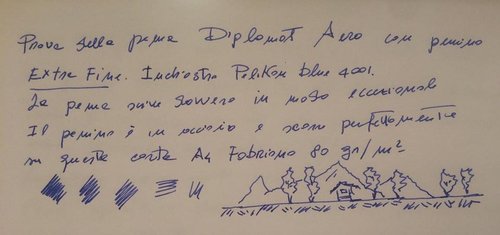 Prova della penna Diplomat Aero con pennino
Extra Fine. Inchiostro Pelikan blue 4001.
La penna scrive davvero in modo eccezionale
Il pennino è in acciaio e scorre perfettamente
su questa carta A4 Fabriano 80 gr/m²